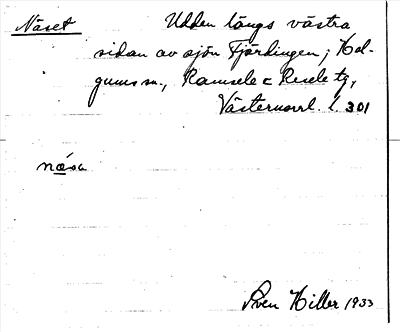 Näset Udden längs västra
sidan av sjön Fjärdingen; Hel-
gums sn., Ramsele o Resele tg,
Västernorrl. l. 301
næsa
Sven Hiller 1933